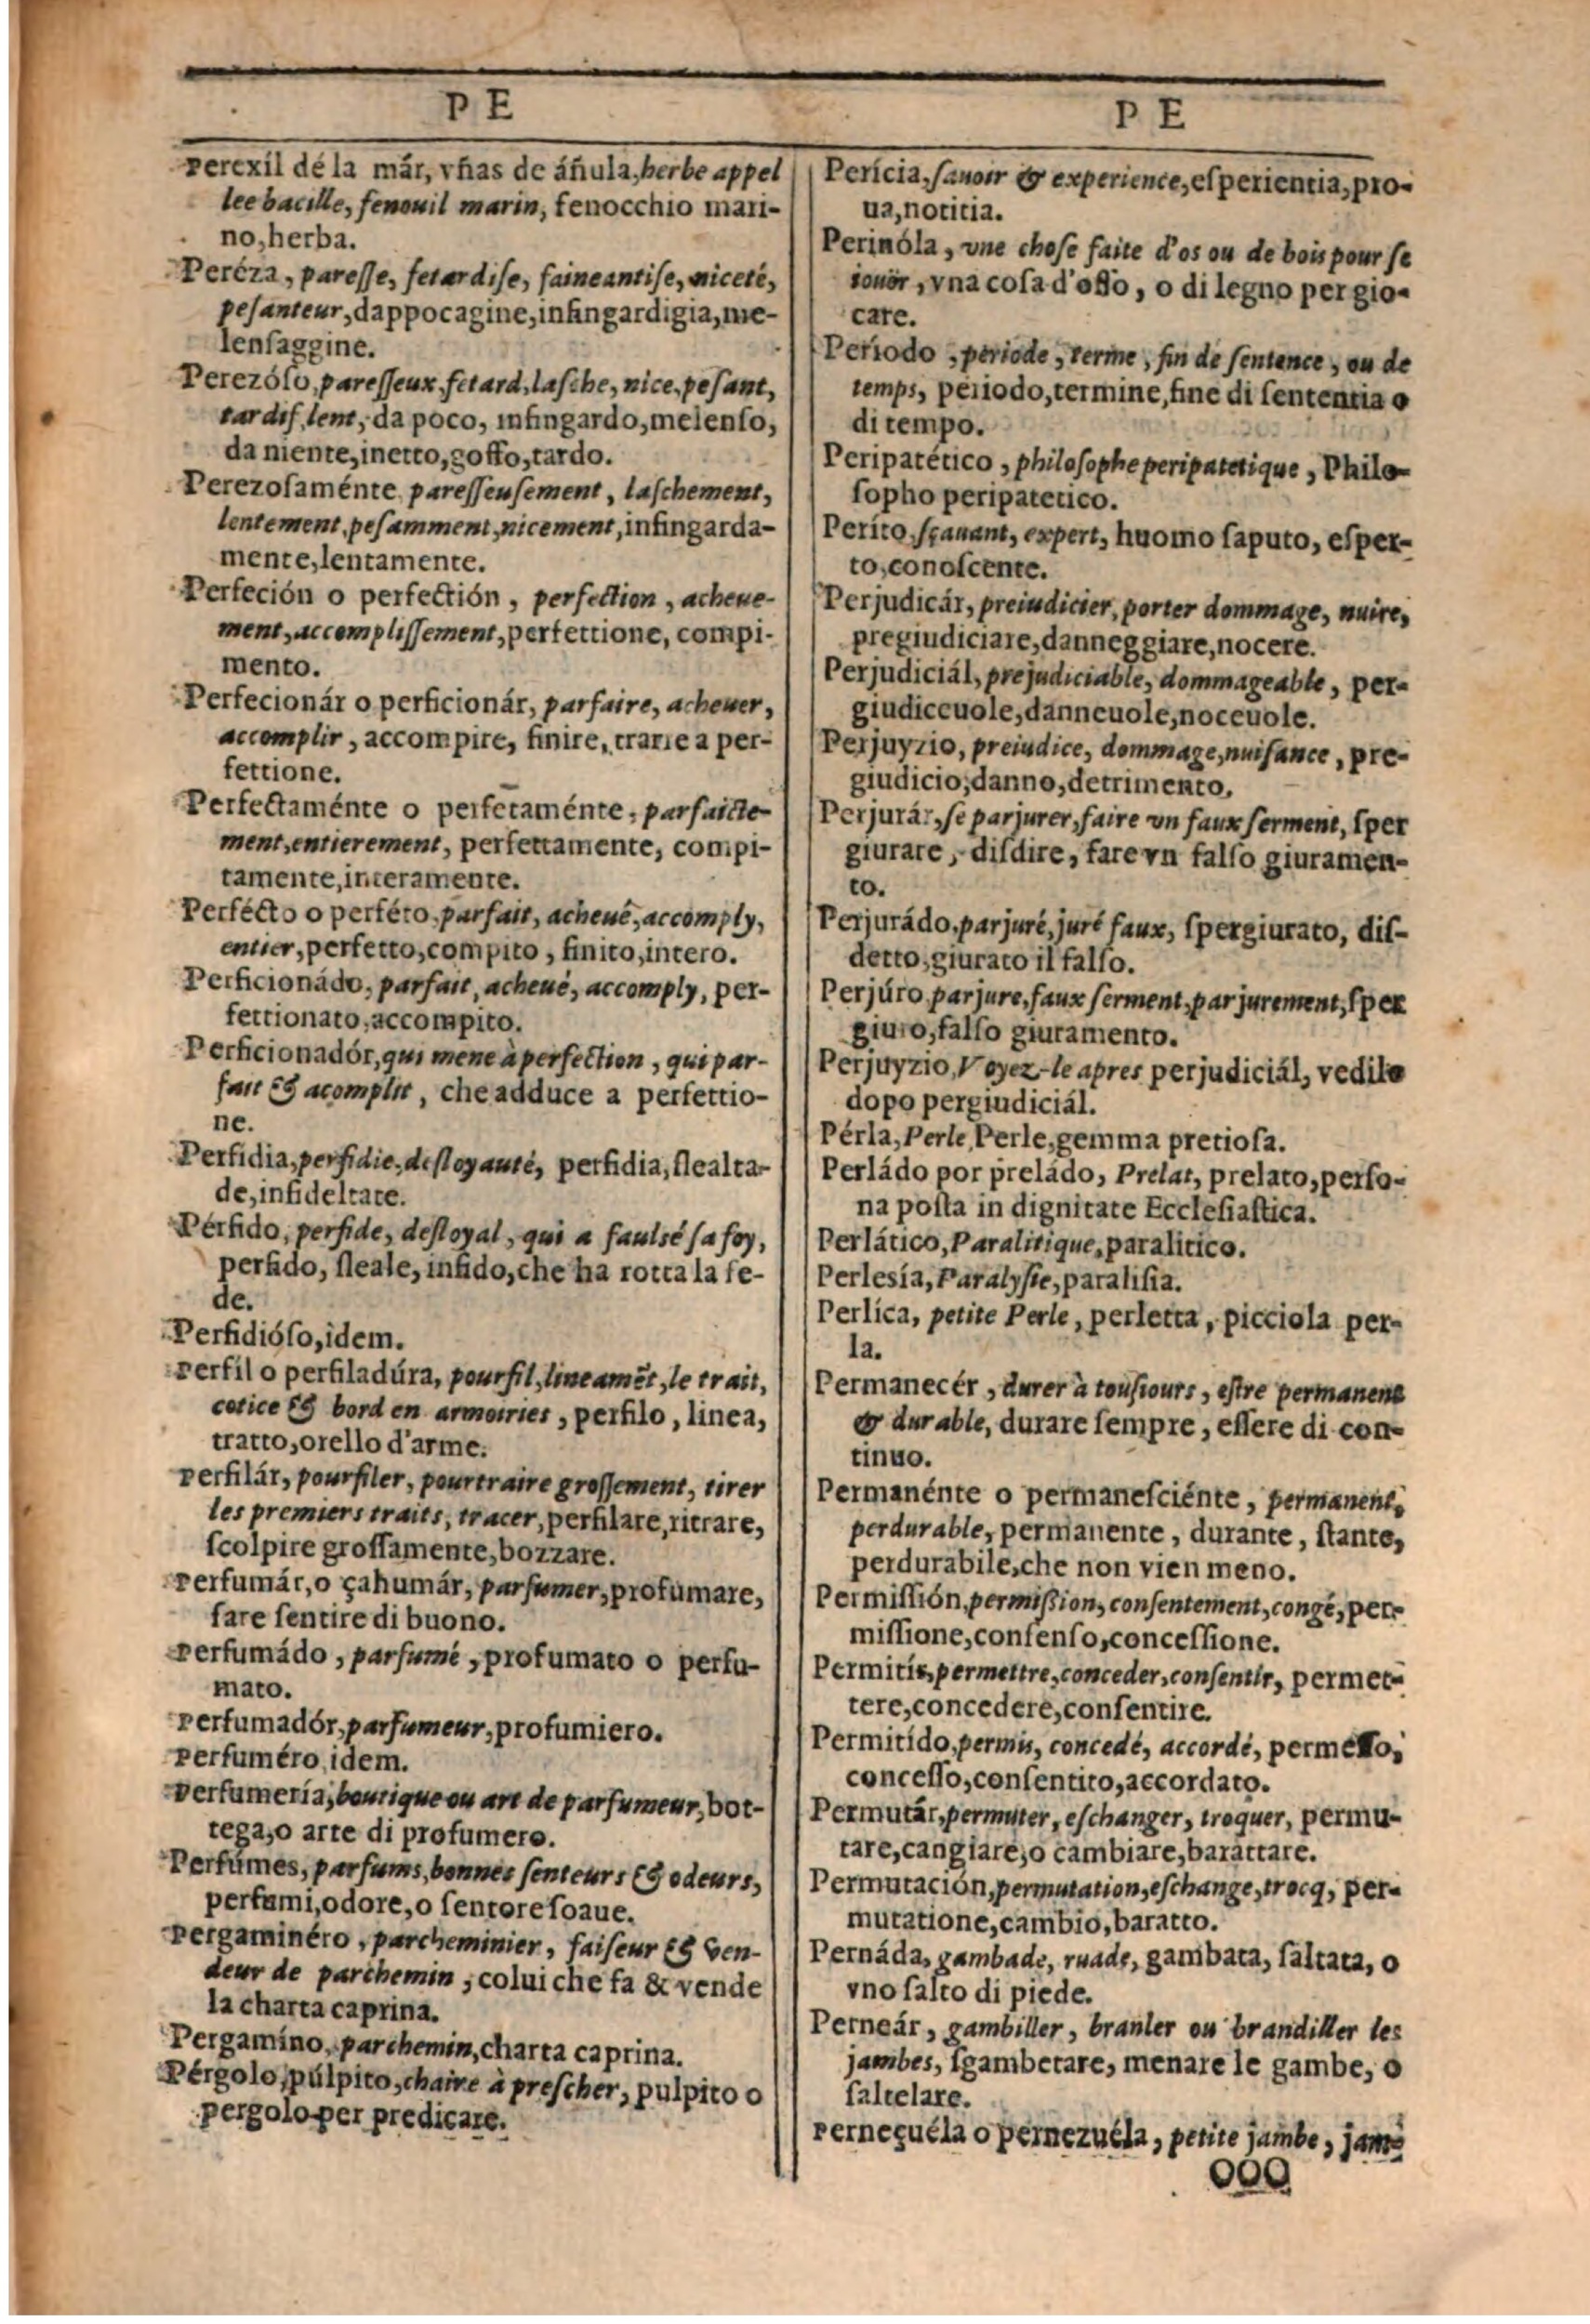 P E
Perexíl dé la már, vñas de áñula, herbe appel
lee bacille, fenouil marin, fenocchio mari-
no, herba.
Peréza, paresse, fetardise, faineantise, niceté,
pesanteur, dappocagine, infingardigia, me-
lensaggine.
Perezóso, paresseux, fetard, lasche, nice, pesant,
tardif, lent, da poco, infingardo, melenso,
da niente, inetto, goffo, tardo.
Perezosaménte paresseusement, laschement,
lentement, pesamment, nicement, infingarda-
mente, lentamente.
Perfeción o perfectión, perfection, acheue-
ment, accomplissement, perfettione, compi-
mento.
Perfecionár o perficionár, parfaire, acheuer,
accomplir, accompire, finire, trarre a per-
fettione.
Perfectaménte o perfetaménte, parfaicte-
ment, entierement, perfettamente, compi-
tamente, interamente.
Perfécto o perféto, parfait, acheué, accomply,
entier, perfetto, compito, finito, intero.
Perficionádo, parfait, acheué, accomply, per-
fettionato, accompito.
Perficionadór, qui mene à perfection, qui par-
fait & acomplit, che adduce a perfettio-
ne.
Perfidia, perfidie, desloyauté, perfidia, slealta-
de, infideltate.
Pérfido, perfide, desloyal, qui a faulsé sa foy,
perfido, sleale, infido, che ha rotta la fe-
de.
Perfidióso, idem.
Perfil o perfiladúra, pourfil, lineamēt, le trait,
cotice & bord en armoiries, perfilo, linea,
tratto, orello d'arme.
Perfilár, pourfiler, pourtraire grossement, tirer
les premiers traits, tracer, perfilare, ritrare,
scolpire grossamente, bozzare.
Perfumár, o çahumár, parfumer, profumare,
fare sentire di buono.
Perfumádo, parfumé, profumato o perfu-
mato.
Perfumadór, parfumeur, profumiero.
Perfuméro, idem.
Perfumería, boutique ou art de parfumeur, bot-
tega, o arte di profumero.
Perfúmes, parfums, bonnes senteurs & odeurs,
perfumi, odore, o sentore soaue.
Pergaminéro, parcheminier, faiseur & ven-
deur de parchemin, colui che fa & vende
la charta caprina.
Pergamíno, parchemin, charta caprina.
Pérgolo, púlpito, chaire à prescher, pulpito o
pergolo per predicare.
P E
Perícia, sauoir & experience, esperientia, pro-
ua, notitia.
Perinóla, vne chose faite d'os ou de bois pour se
iouër, vna cosa d'osso, o di legno per gio-
care.
Período, periode, terme, fin de sentence, ou de
temps, periodo, termine, fine di sententia o
di tempo.
Peripatético, philosophe peripatetique, Philo-
sopho peripatetico.
Períto, sçauant, expert, huomo saputo, esper-
to, conoscente.
Perjudicár, preiudicier, porter dommage, nuire,
pregiudiciare, danneggiare, nocere.
Perjudiciál, prejudiciable, dommageable, per-
giudiceuole, danneuole, noceuole.
Perjuyzio, preiudice, dommage, nuisance, pre-
giudicio, danno, detrimento.
Perjurár, se parjurer, faire vn faux serment, sper
giurare, disdire, fare vn falso giuramen-
to.
Perjurádo, parjuré, juré faux, spergiurato, dis-
detto, giurato il falso.
Perjúro parjure, faux serment, parjurement, sper
giuro, falso giuramento.
Perjuyzio, Voyez-le apres perjudiciál, vedilo
dopo pergiudiciál.
Pérla, Perle, Perle, gemma pretiosa.
Perládo por preládo, Prelat, prelato, perso-
na posta in dignitate Ecclesiastica.
Perlático, Paralitique, paralitico.
Perlesía, Paralysie, paralisia.
Perlíca, petite Perle, perletta, picciola per-
la.
Permanecér, durer à tousiours, estre permanent
& durable, durare sempre, essere di con-
tinuo.
Permanénte o permanesciénte, permanent,
perdurable, permanente, durante, stante,
perdurabile, che non vien meno.
Permissión, permission, consentement, congé, per-
missione, consenso, concessione.
Permitír, permettre, conceder, consentir, permet-
tere, concedere, consentire.
Permitído, permis, concedé, accordé, permesso,
concesso, consentito, accordato.
Permutár, permuter, eschanger, troquer, permu-
tare, cangiare, o cambiare, barattare.
Permutación, permutation, eschange, trocq, per-
mutatione, cambio, baratto.
Pernáda, gambade, ruade, gambata, saltata, o
vno salto di piede.
Perneár, gambiller, branler ou brandiller les
jambes, sgambetare, menare le gambe, o
saltelare.
Perneçuéla o pernezuéla, petite jambe, jam-
ooo